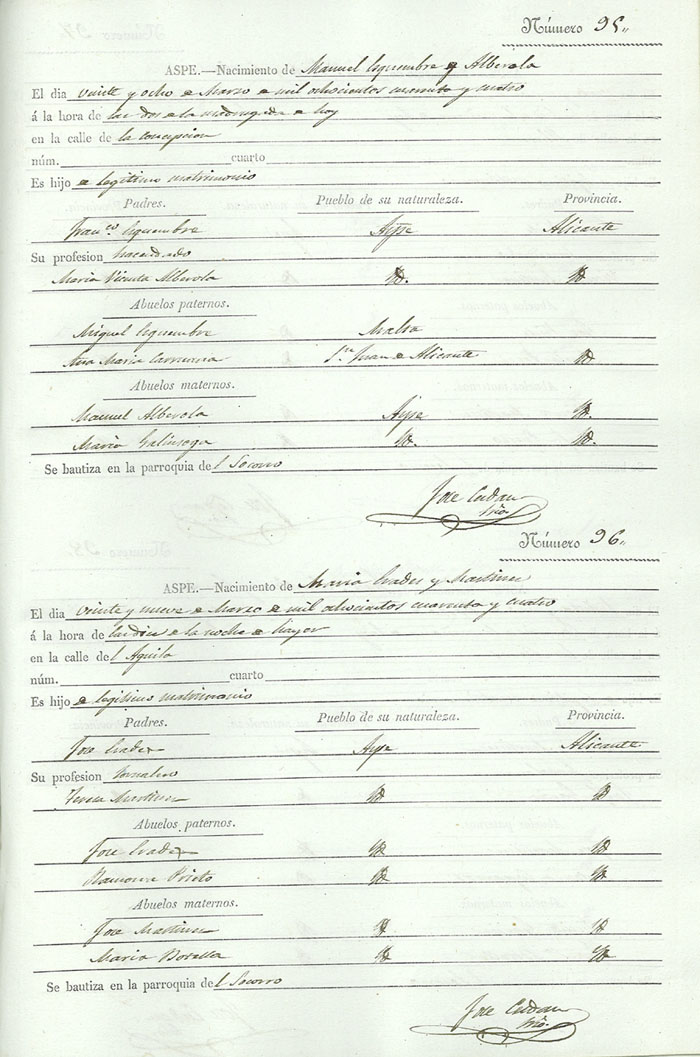 Número 95.,
ASPE.—Nacimiento de Manuel Esquembre y Alberola
El dia veinte y ocho de Marzo de mil ochocientos cuarenta y cuatro
á la hora de las dos de la madrugada de hoy
en la calle de la concepcion
núm. cuarto
Es hijo de legitimo matrimonio
Padres. Pueblo de su naturaleza. Provincia.
Franco. Esquembre Aspe Alicante
Su profesion hacendado
Maria Vicenta Alberola Yd. Yd
Abuelos paternos.
Miguel Esquembre
Ana Maria Sn. Juan de Alicante Yd
Abuelos maternos.
Manuel Alberola Aspe Yd.
Maria Galinsoga Yd. Yd.
Se bautiza en la parroquia del Socorro
Jose
Srio.
Número 96.,
ASPE.—Nacimiento de Maria Prades y Martinez
El dia veinte y nueve de Marzo de mil ochocientos cuarenta y cuatro
á la hora de las diez de la noche de hayer
en la calle del Aguila
núm. cuarto
Es hijo de legitimo matrimonio
Padres. Pueblo de su naturaleza. Provincia.
Jose Prades Aspe Alicante
Su profesion Jornalero
Teresa Martinez Yd Yd
Abuelos paternos.
Jose Prades Yd Yd
Ramona Prieto Yd Yd
Abuelos maternos.
Jose Martinez Yd Yd
Maria Botella Yd Yd
Se bautiza en la parroquia del Socorro
Jose
Srio.